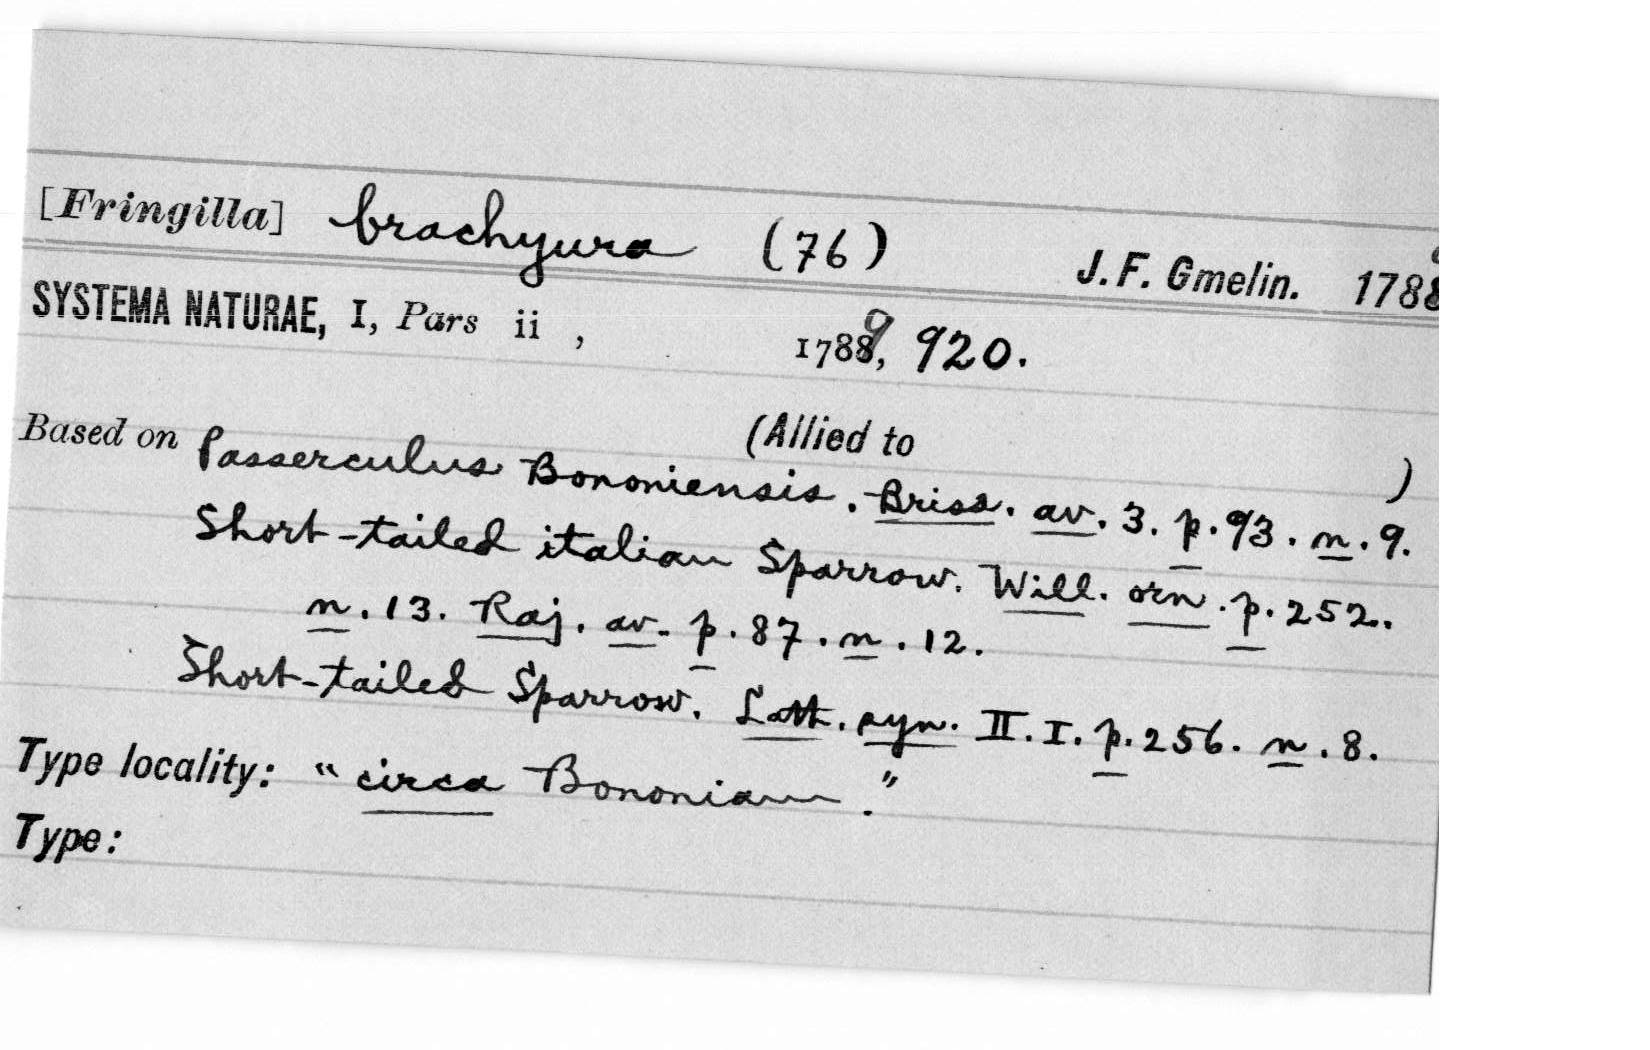 [Fringilla] brachyura (76) J. F. Gmelin. 1788
SYSTEMA NATURAE, I, Pars ii , 1789, 920.
(Allied to )
Based on Passerculus Bononiensis. Briss. av. 3. p. 93. n. 9.
Short-tailed italian Sparrow. Will. orn. p. 252.
n. 13. Raj. av. p. 87. n. 12.
Short-tailed Sparrow. Lath. syn. II. I. p. 256. n. 8.
Type locality: "circa Bononiam."
Type: